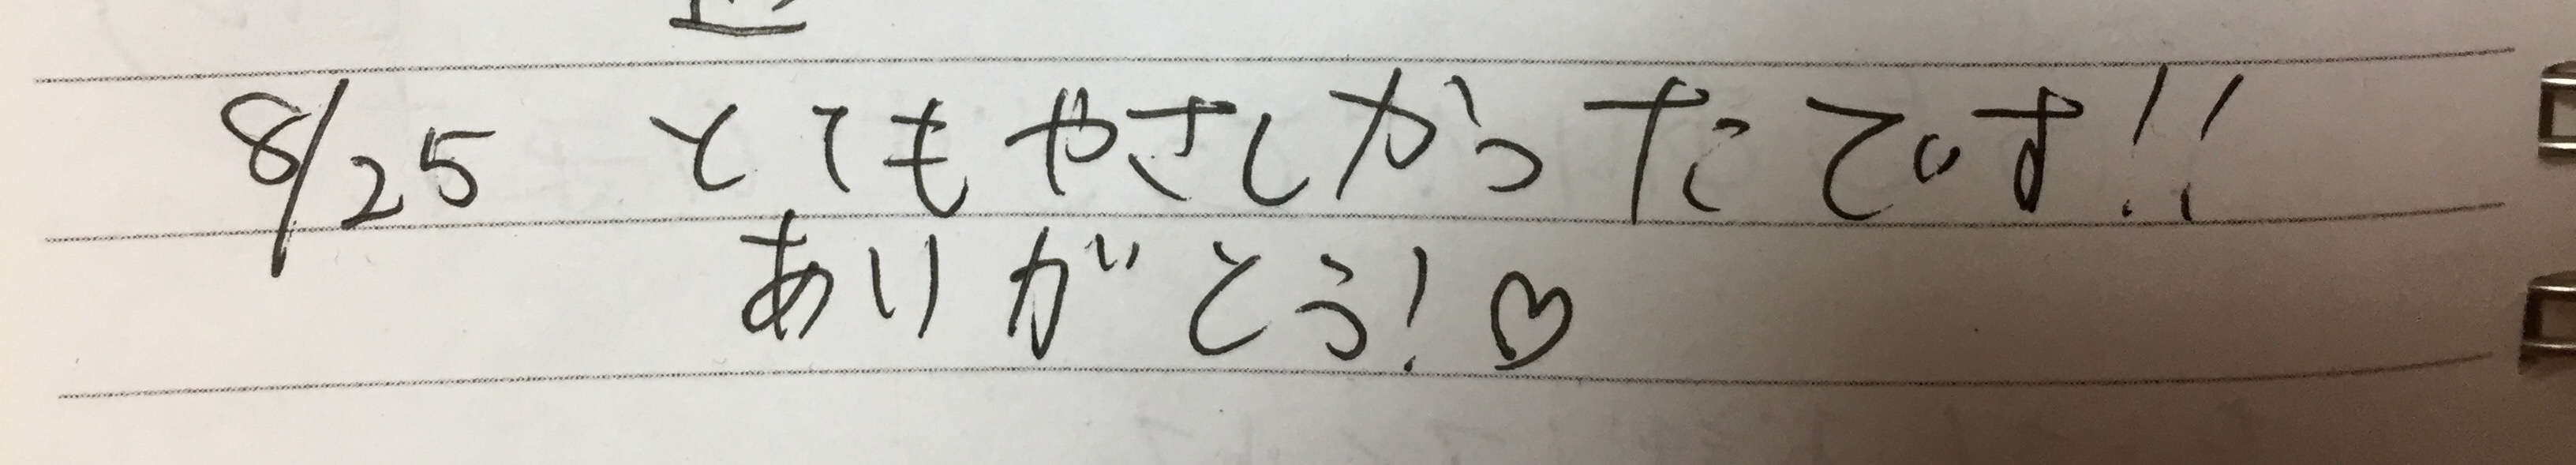 8/25 とてもやさしかったです!!
ありがとう!♡